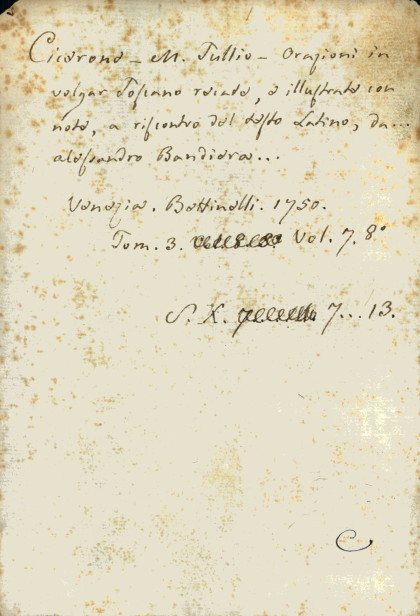 Cicerone - M. Tullio - Orazioni in
volgar Toscano recate, e illustrate con
note, a riscontro del testo Latino, da...
Alessandro Bandiera...
Venezia. Bettinelli. 1750.
Tom. 3. Vol. 7. 8°
S. X. 7... 13.
C